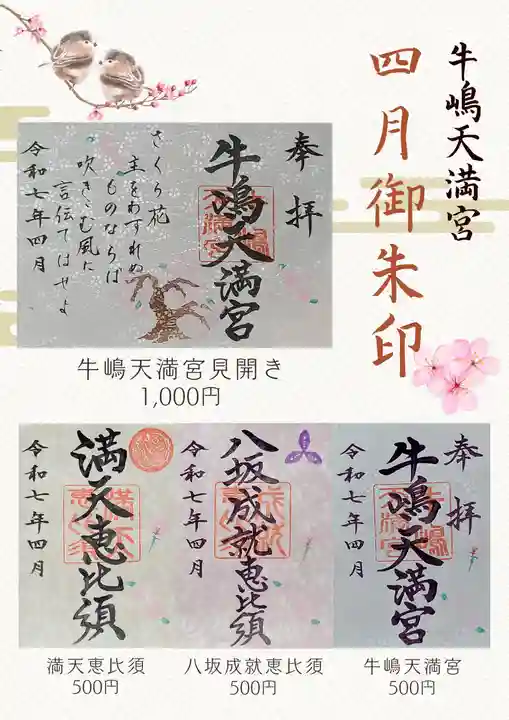 牛嶋天満宮
四月御朱印
奉拝
牛嶋天満宮
さくら花
主をわすれぬ
ものならば
吹きこむ風に
言伝てはせよ
令和七年四月
牛嶋天満宮見開き
1,000円
満天恵比須
令和七年四月
八坂成就恵比須
令和七年四月
奉拝
牛嶋天満宮
令和七年四月
満天恵比須
500円
八坂成就恵比須
500円
牛嶋天満宮
500円